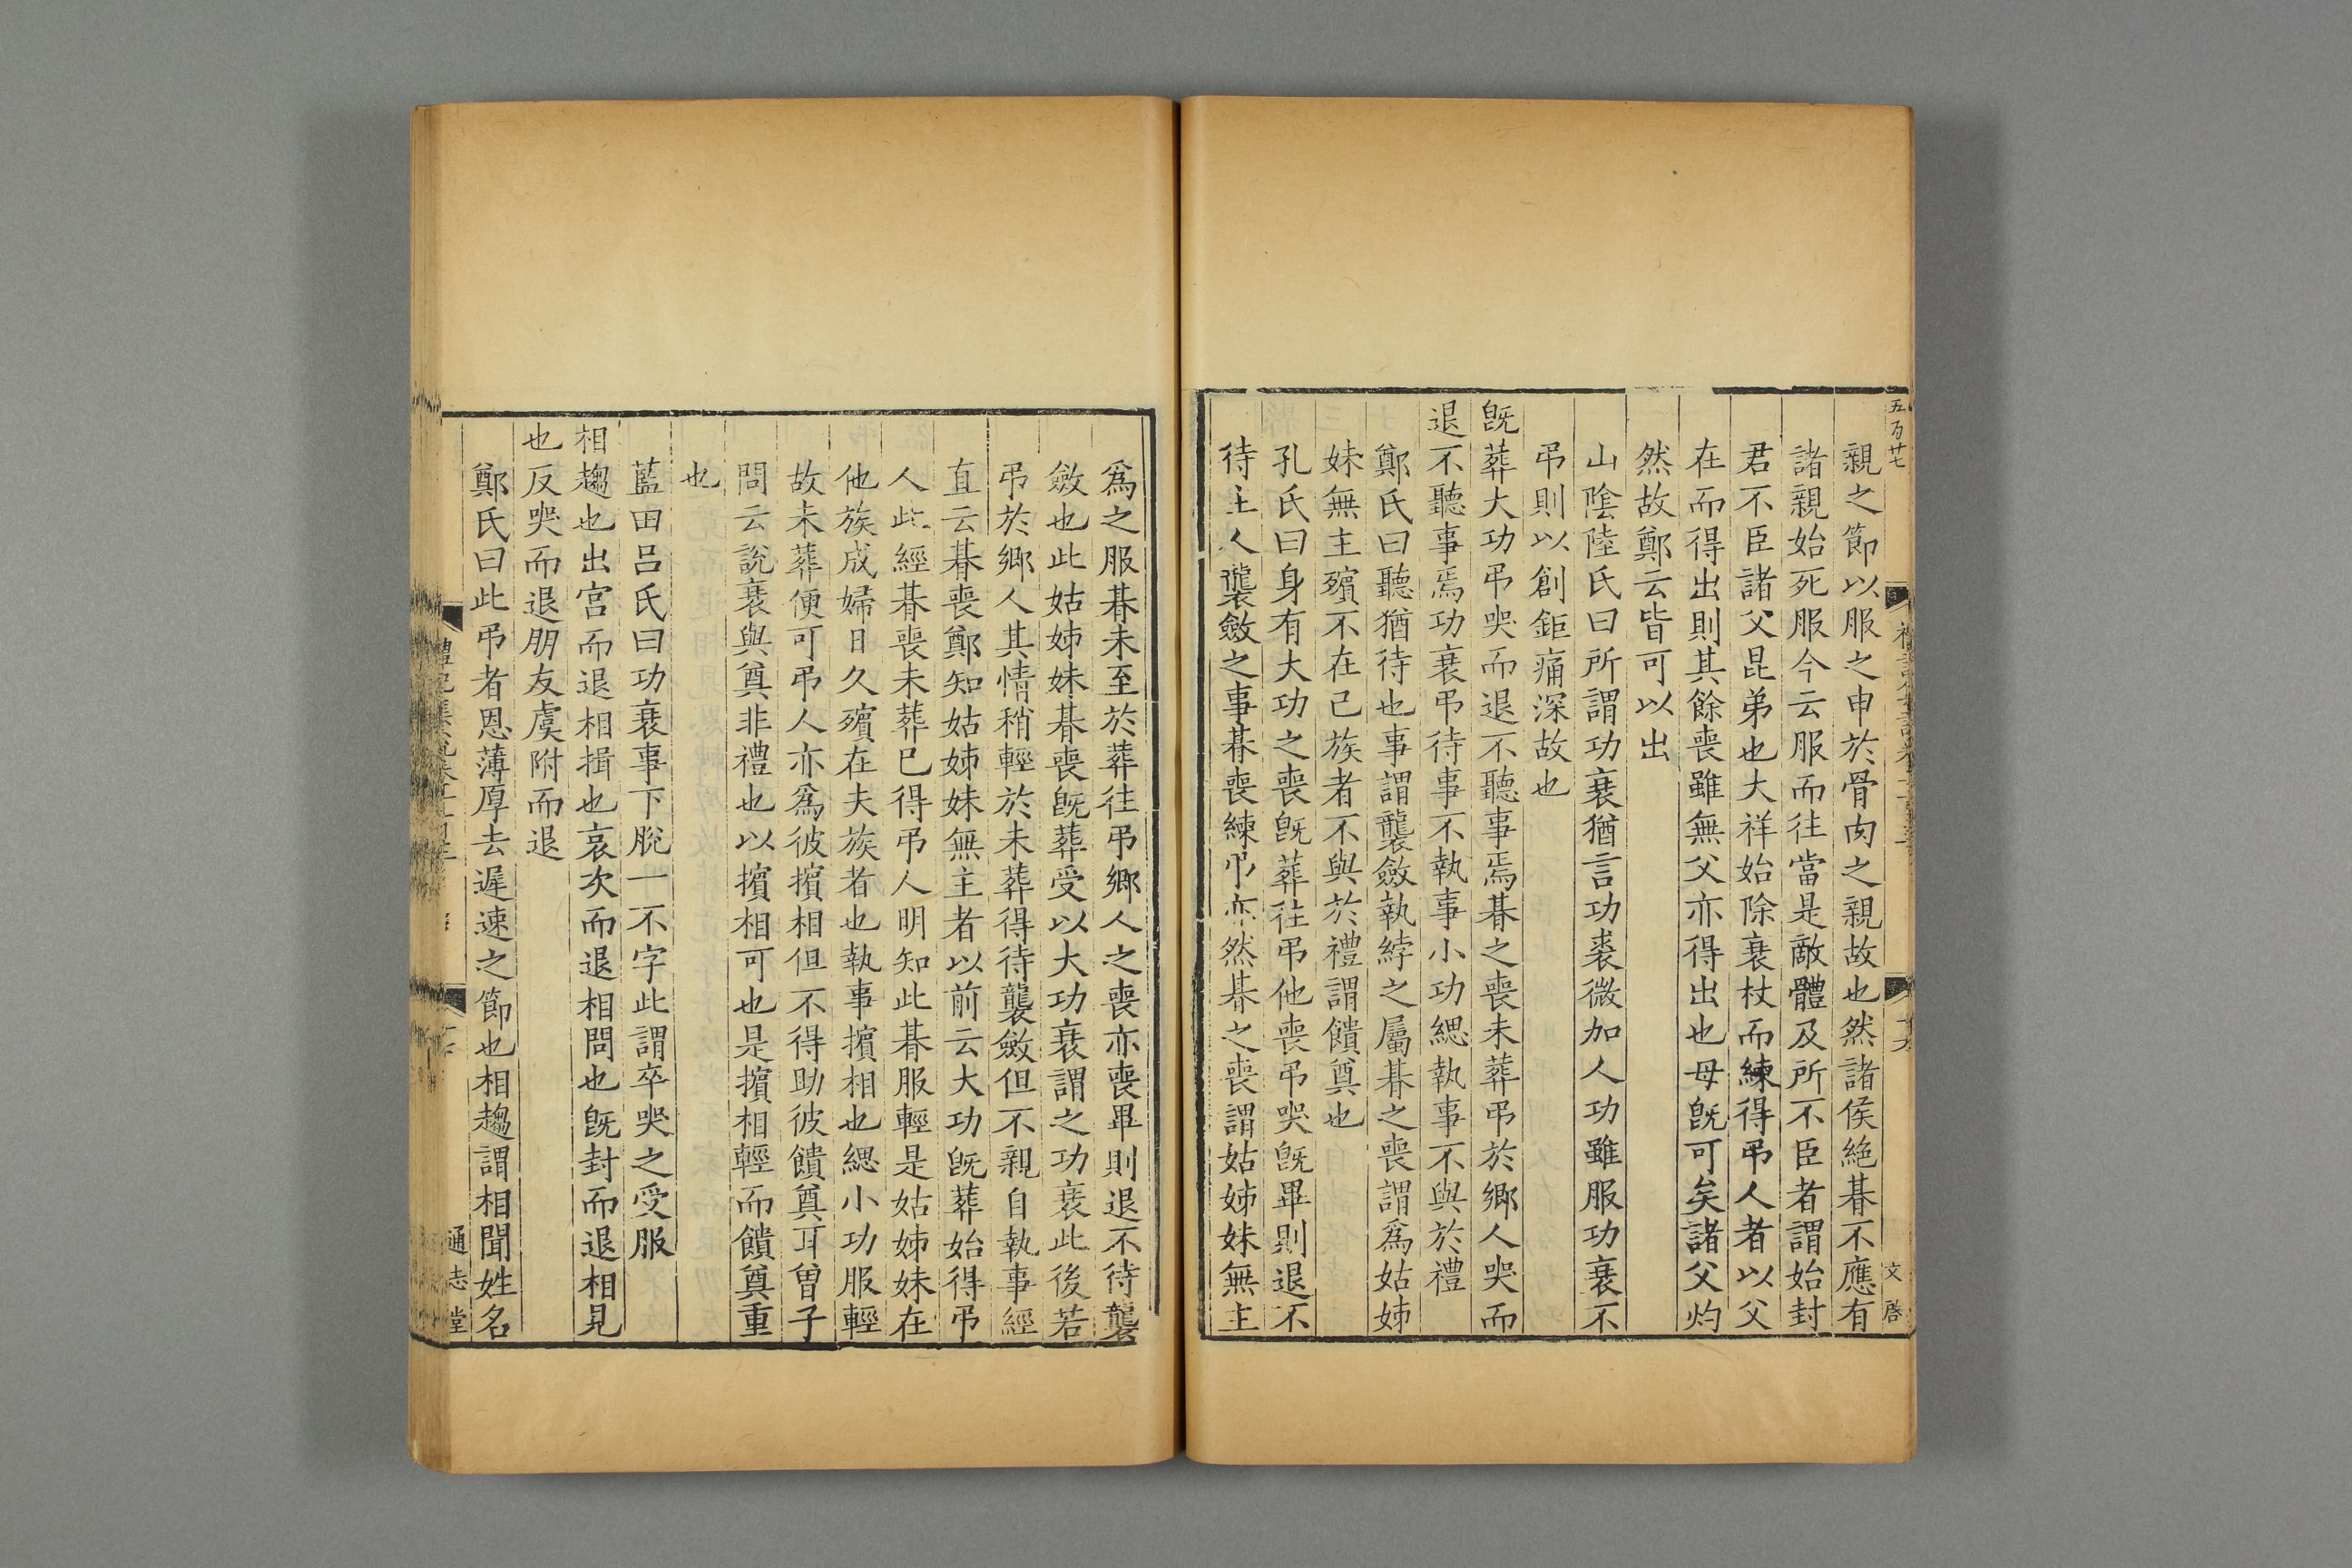 五百廿七
文啓
親之節以服之申於骨肉之親故也然諸侯絶朞不應有
諸親始死服今云服而往當是敵體及所不臣者謂始封
君不臣諸父昆弟也大祥始除衰杖而練得弔人者以父
在而得出則其餘喪雖無父亦得出也母旣可矣諸父灼
然故鄭云皆可以出
山陰陸氏曰所謂功衰猶言功裘微加人功雖服功衰不
弔則以創鉅痛深故也
旣葬大功弔哭而退不聽事焉朞之喪未葬弔於鄉人哭而
退不聽事焉功衰弔待事不執事小功緦執事不與於禮
鄭氏曰聽猶待也事謂襲斂執綍之屬朞之喪謂爲姑姊
妹無主殯不在己族者不與於禮謂饋奠也
孔氏曰身有大功之喪旣葬往弔他喪弔哭旣畢則退不
待主人襲斂之事朞喪練弔亦然朞之喪謂姑姊妹無主
爲之服朞未至於葬往弔鄉人之喪亦喪畢則退不待襲
斂也此姑姊妹朞喪旣葬受以大功衰謂之功衰此後若
弔於鄉人其情稍輕於未葬得待襲斂但不親自執事經
直云朞喪鄭知姑姊妹無主者以前云大功旣葬始得弔
人此經朞喪未葬已得弔人明知此朞服輕是姑姊妹在
他族成婦日久殯在夫族者也執事擯相也緦小功服輕
故未葬便可弔人亦爲彼擯相但不得助彼饋奠耳曾子
問云說衰與奠非禮也以擯相可也是擯相輕而饋奠重
也
藍田呂氏曰功衰事下脫一不字此謂卒哭之受服
相趨也出宮而退相揖也哀次而退相問也旣封而退相見
也反哭而退朋友虞附而退
鄭氏曰此弔者恩薄厚去遲速之節也相趨謂相聞姓名
通志堂